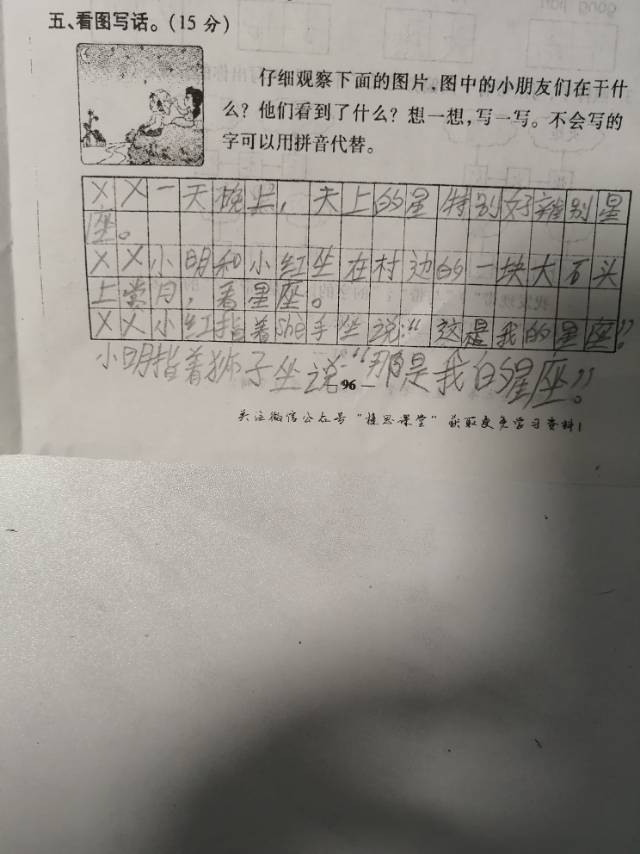 五、看图写话。(15 分)
仔细观察下面的图片,图中的小朋友们在干什
么?他们看到了什么?想一想,写一写。不会写的
字可以用拼音代替。
X X 一天晚上,天上的星特别好辨别星
座。
X X 小明和小红坐在村边的一块大石头
上赏月,看星座。
X X 小红指着she手坐说:“这是我的星座。”
小明指着狮子坐说“那是我的星座。”
96
关注微信公众号“桂思课堂”获取更多学习资料!